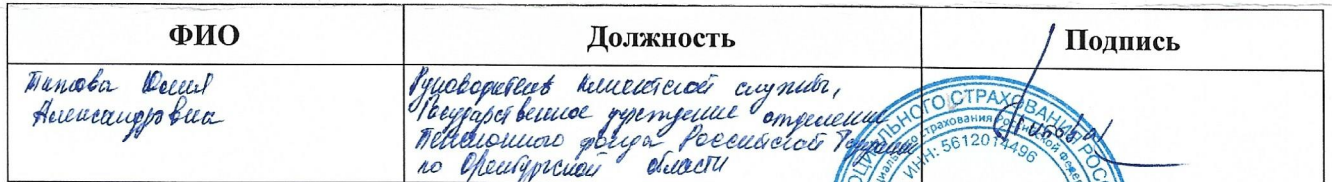 ФИО Должность Подпись
Титова Юлия
Александровна
Руководитель клиентской службы,
Государственное учреждение отделение
Пенсионного фонда Российской Федерации
по Оренбургской области
СОЦИАЛЬНОГО СТРАХОВАНИЯ РОС
страхования Российской Феде
ИНН: 5612014496